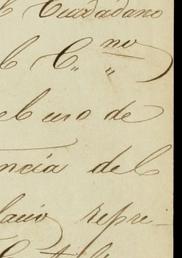 l Ciudadano
l C. no
el uso de
ncia del
lacio repre-